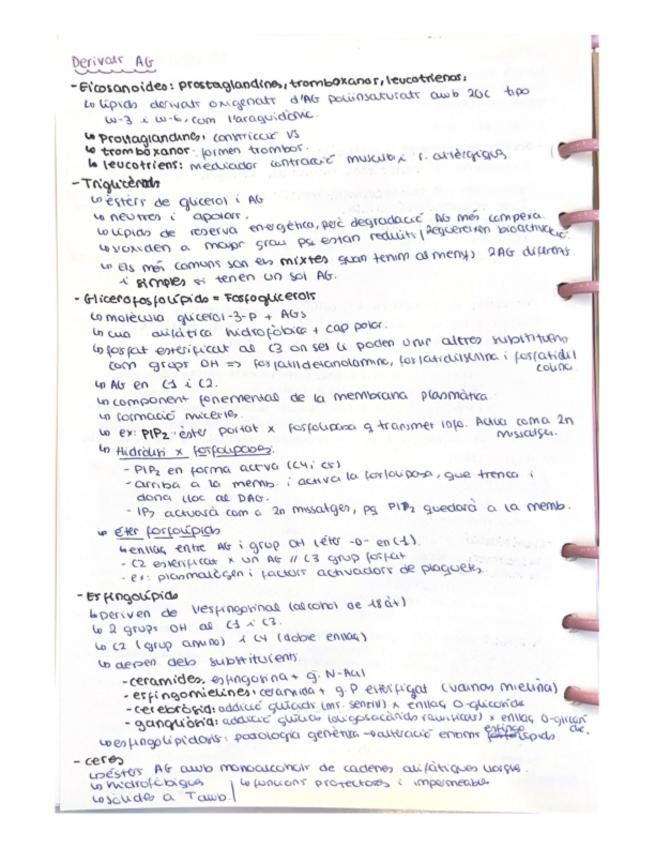 Derivats AG
- Eicosanoides: prostaglandines, tromboxanos, leucotrienos:
↳ lípids derivats oxigenats d'AG poliinsaturats amb 20C tipo
w-3 i w-6, com l'araquidònic.
↳ Prostaglandines: contricció VS
↳ tromboxanos: formen trombos.
↳ leucotriens: mediador contracció muscular i r. al·lèrgiques
- Triglicèrids
↳ èsters de glicerol i AG
↳ neutres i apolars.
↳ lípids de reserva energètica, però degradació AG més complexa.
↳ s'oxiden a major grau pq estan reduïts / Requereixen bioactivació.
↳ Els més comuns son els mixtes quan tenim al menys 2AG diferents
i simples si tenen un sol AG.
- Glicerofosfolípids = Fosfoglicerols
↳ molècula glicerol-3-P + AGs
↳ cua alifàtica hidrofòbica + cap polar.
↳ fosfat esterificat al C3 on se li poden unir altres substituents
com grups OH => fosfatidiletanolamina, fosfatidilserina i fosfatidil
colina.
↳ AG en C1 i C2.
↳ component fonemental de la membrana plasmàtica
↳ formació miceles.
↳ ex: PIP2 - èster portat x fosfolipasa q transmet info. Actua com a 2n
missatger.
↳ Hidròlisi x fosfolipases:
- PIP2 en forma activa (C4 i C5)
- arriba a la memb. i activa la fosfolipasa, que trenca i
dona lloc al DAG.
- IP3 actuarà com a 2n missatger, pq PIP2 quedarà a la memb.
↳ éter fosfolípids
↳ enllaç entre AG i grup OH (éter -O- en C1).
- C2 esterificat x un AG // C3 grup fosfat
- ex: plasmalògen i factors activadors de plaquetes.
- Esfingolípids
↳ Deriven de l'esfingosina (alcohol de 18 àt)
↳ 2 grups OH al C1 i C3.
↳ C2 (grup amino) i C4 (doble enllaç)
↳ depen dels substituents.
- ceramides: esfingosina + g. N-Acil
- esfingomielines: ceramida + g. P esterificat (vaines mielina)
- cerebròsid: addició glúcids (mr. senzill) x enllaç O-glicosídic
- gangliòsid: addició glúcids (oligosacàrids ramificats) x enllaç O-glicosí
dic.
↳ esfingolipidosis: patologia genètica - alteració enzims esfingolípids.
- ceres
↳ èsters AG amb monoalcohols de cadenes alifàtiques llargues.
↳ hidrofòbiques | ↳ funcions protectores i impermeable
↳ sòlides a T amb.